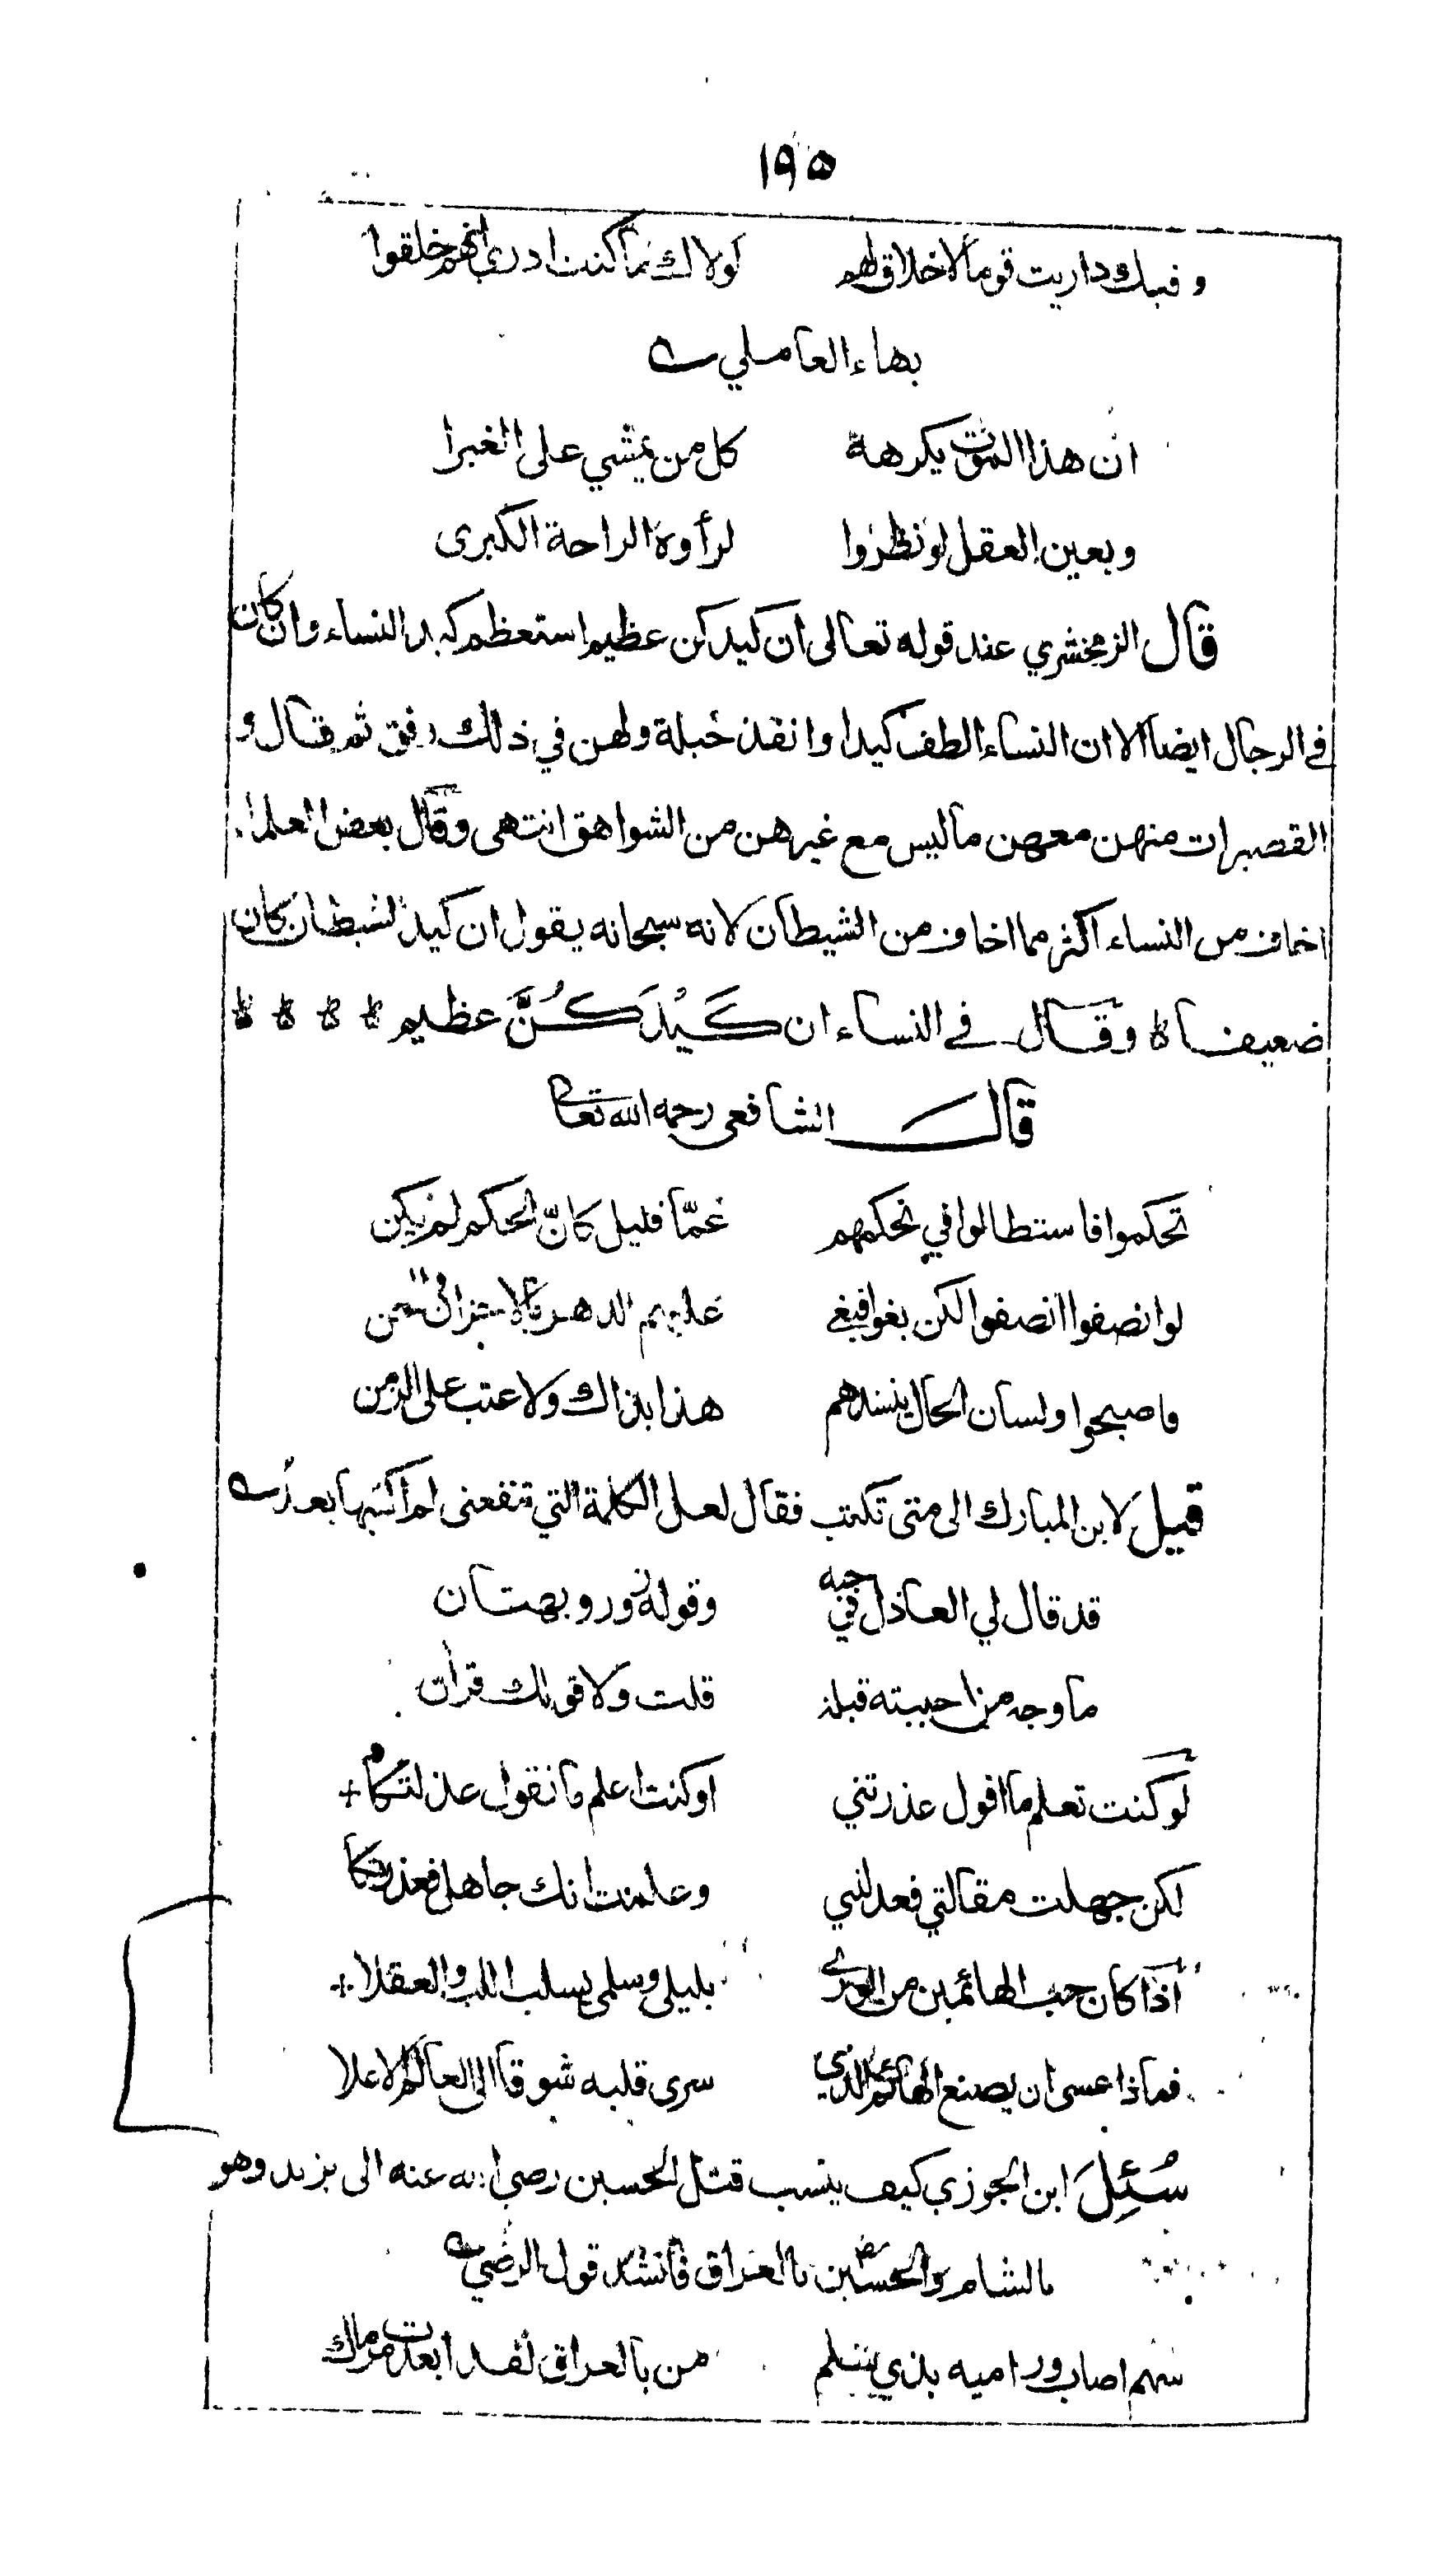 ١٩٥
وفيك داريت قوما لا خلاق لهم لولاك ما كنت ادري انهم خلقوا
بهاء العاملي
ان هذا الموت يكرهه كل من يمشي على الغبرا
وبعين العقل لو نظروا لرأوه الراحة الكبرى
قال الزمخشري عند قوله تعالى ان كيدكن عظيم استعظم كيد النساء وان كان
في الرجال ايضا الا ان النساء الطف كيدا وانفذ حيلة ولهن في ذلك رفق ثم قال و
القصيرات منهن معهن ما ليس مع غيرهن من الشواهق انتهى وقال بعض العلماء
اخاف من النساء اكثر مما اخاف من الشيطان لانه سبحانه يقول ان كيد الشيطان كان
ضعيفا وقال في النساء ان كَيْدَكُنَّ عظيم
قال الشافعي رحمه الله تعالى
تحكموا فاستطالوا في تحكمهم عمّا قليل كانّ الحكم لم يكن
لو انصفوا انصفوا لكن بغوا فبغي عليهم الدهر بالاحزان والمحن
فاصبحوا ولسان الحال ينشدهم هذا بذاك ولا عتب على الزمن
قيل لابن المبارك الى متى تكتب فقال لعل الكلمة التي تنفعني لم اكتبها بعد
قد قال لي العاذل في حبه وقوله زور وبهتان
ما وجه من احببته قبلة قلت ولا قولك قرآن
لو كنت تعلم ما اقول عذرتني او كنت اعلم ما تقول عذلتكا
لكن جهلت مقالتي فعذلتني وعلمت انك جاهل فعذرتكا
اذا كان حب الهائمين من الورى بليلى وسلمى يسلب اللب والعقلا
فماذا عسى ان يصنع الهائم الذي سرى قلبه شوقا الى العالم الاعلا
سُئِلَ ابن الجوزي كيف ينسب قتل الحسين رضي الله عنه الى يزيد وهو
بالشام والحسين بالعراق فانشد قول الرضي
سهم اصاب وراميه بذي سلم من بالعراق لقد ابعدت مرماك